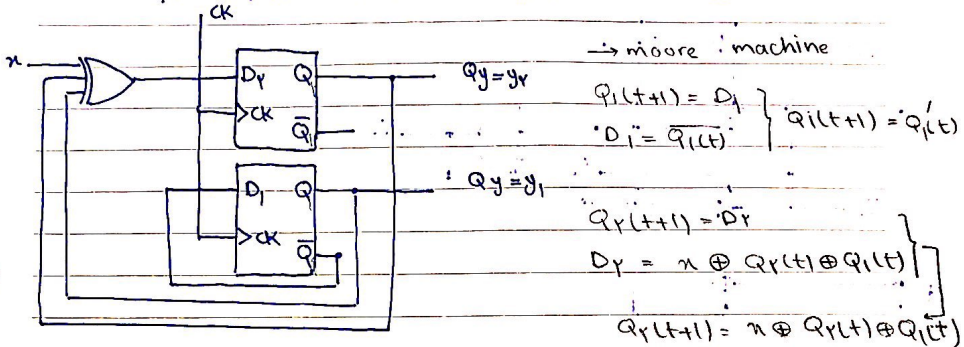 CK
x
D۲ Q
CK
Q̅₁
Qy = y۲
D₁ Q
CK
Q̅
Qy = y₁
→ moore machine
Q₁(t+1) = D₁
D₁ = \overline{Q₁(t)}
Q₁(t+1) = Q₁′(t)
Q۲(t+1) = D۲
D۲ = x ⊕ Q۲(t) ⊕ Q₁(t)
Q۲(t+1) = x ⊕ Q۲(t) ⊕ Q₁(t)